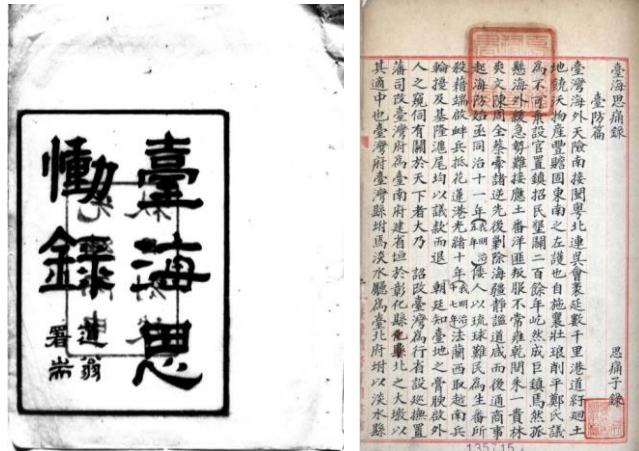 臺海思
慟錄
翁
署耑
臺海思痛錄 思痛子錄
臺防篇
臺灣海外天險南接閩粵北連吳會袤延數千里港道紆迴土
地饒沃物產豐贍固東南之左護也自施襄壯琅削平鄭氏議
為不可棄設官置鎮招民墾闢二百餘年屹然成巨鎮焉然孤
懸海外緩急勢難接應土番洋匪叛服不常雍乾間朱一貴林
爽文陳周全蔡牽諸逆先後剿除海疆靜謐道咸而後通商事
起海防始亟同治十一年(我明治五年)倭人以琉球難民為生番所
殺藉端啟衅兵抵花蓮港光緒十年(我明治十七年)法蘭西取越南兵
輪擾及基隆滬尾均以議款而退 朝廷知臺地之膏腴啟外
人之窺伺有關於天下者大乃 詔改臺灣為行省設巡撫置
藩司改臺灣府為臺南府建省垣於彰化縣北之大墩以
其適中也臺灣府臺灣縣坿焉淡水廳為臺北府坿以淡水縣